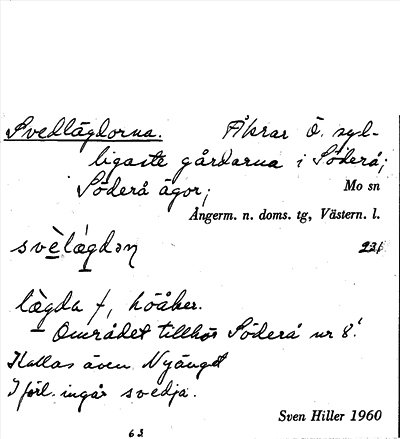 Svedlägdorna. Åkrar Ö. syd-
ligaste gårdarna i Söderå;
Söderå ägor; Mo sn
Ångerm. n. doms. tg, Västern. l.
svèlǽgdəɳ 231
lägda f, höåker.
Området tillhör Söderå nr 8.
Kallas även Nyänget
I förl. ingår svedja.
Sven Hiller 1960
63